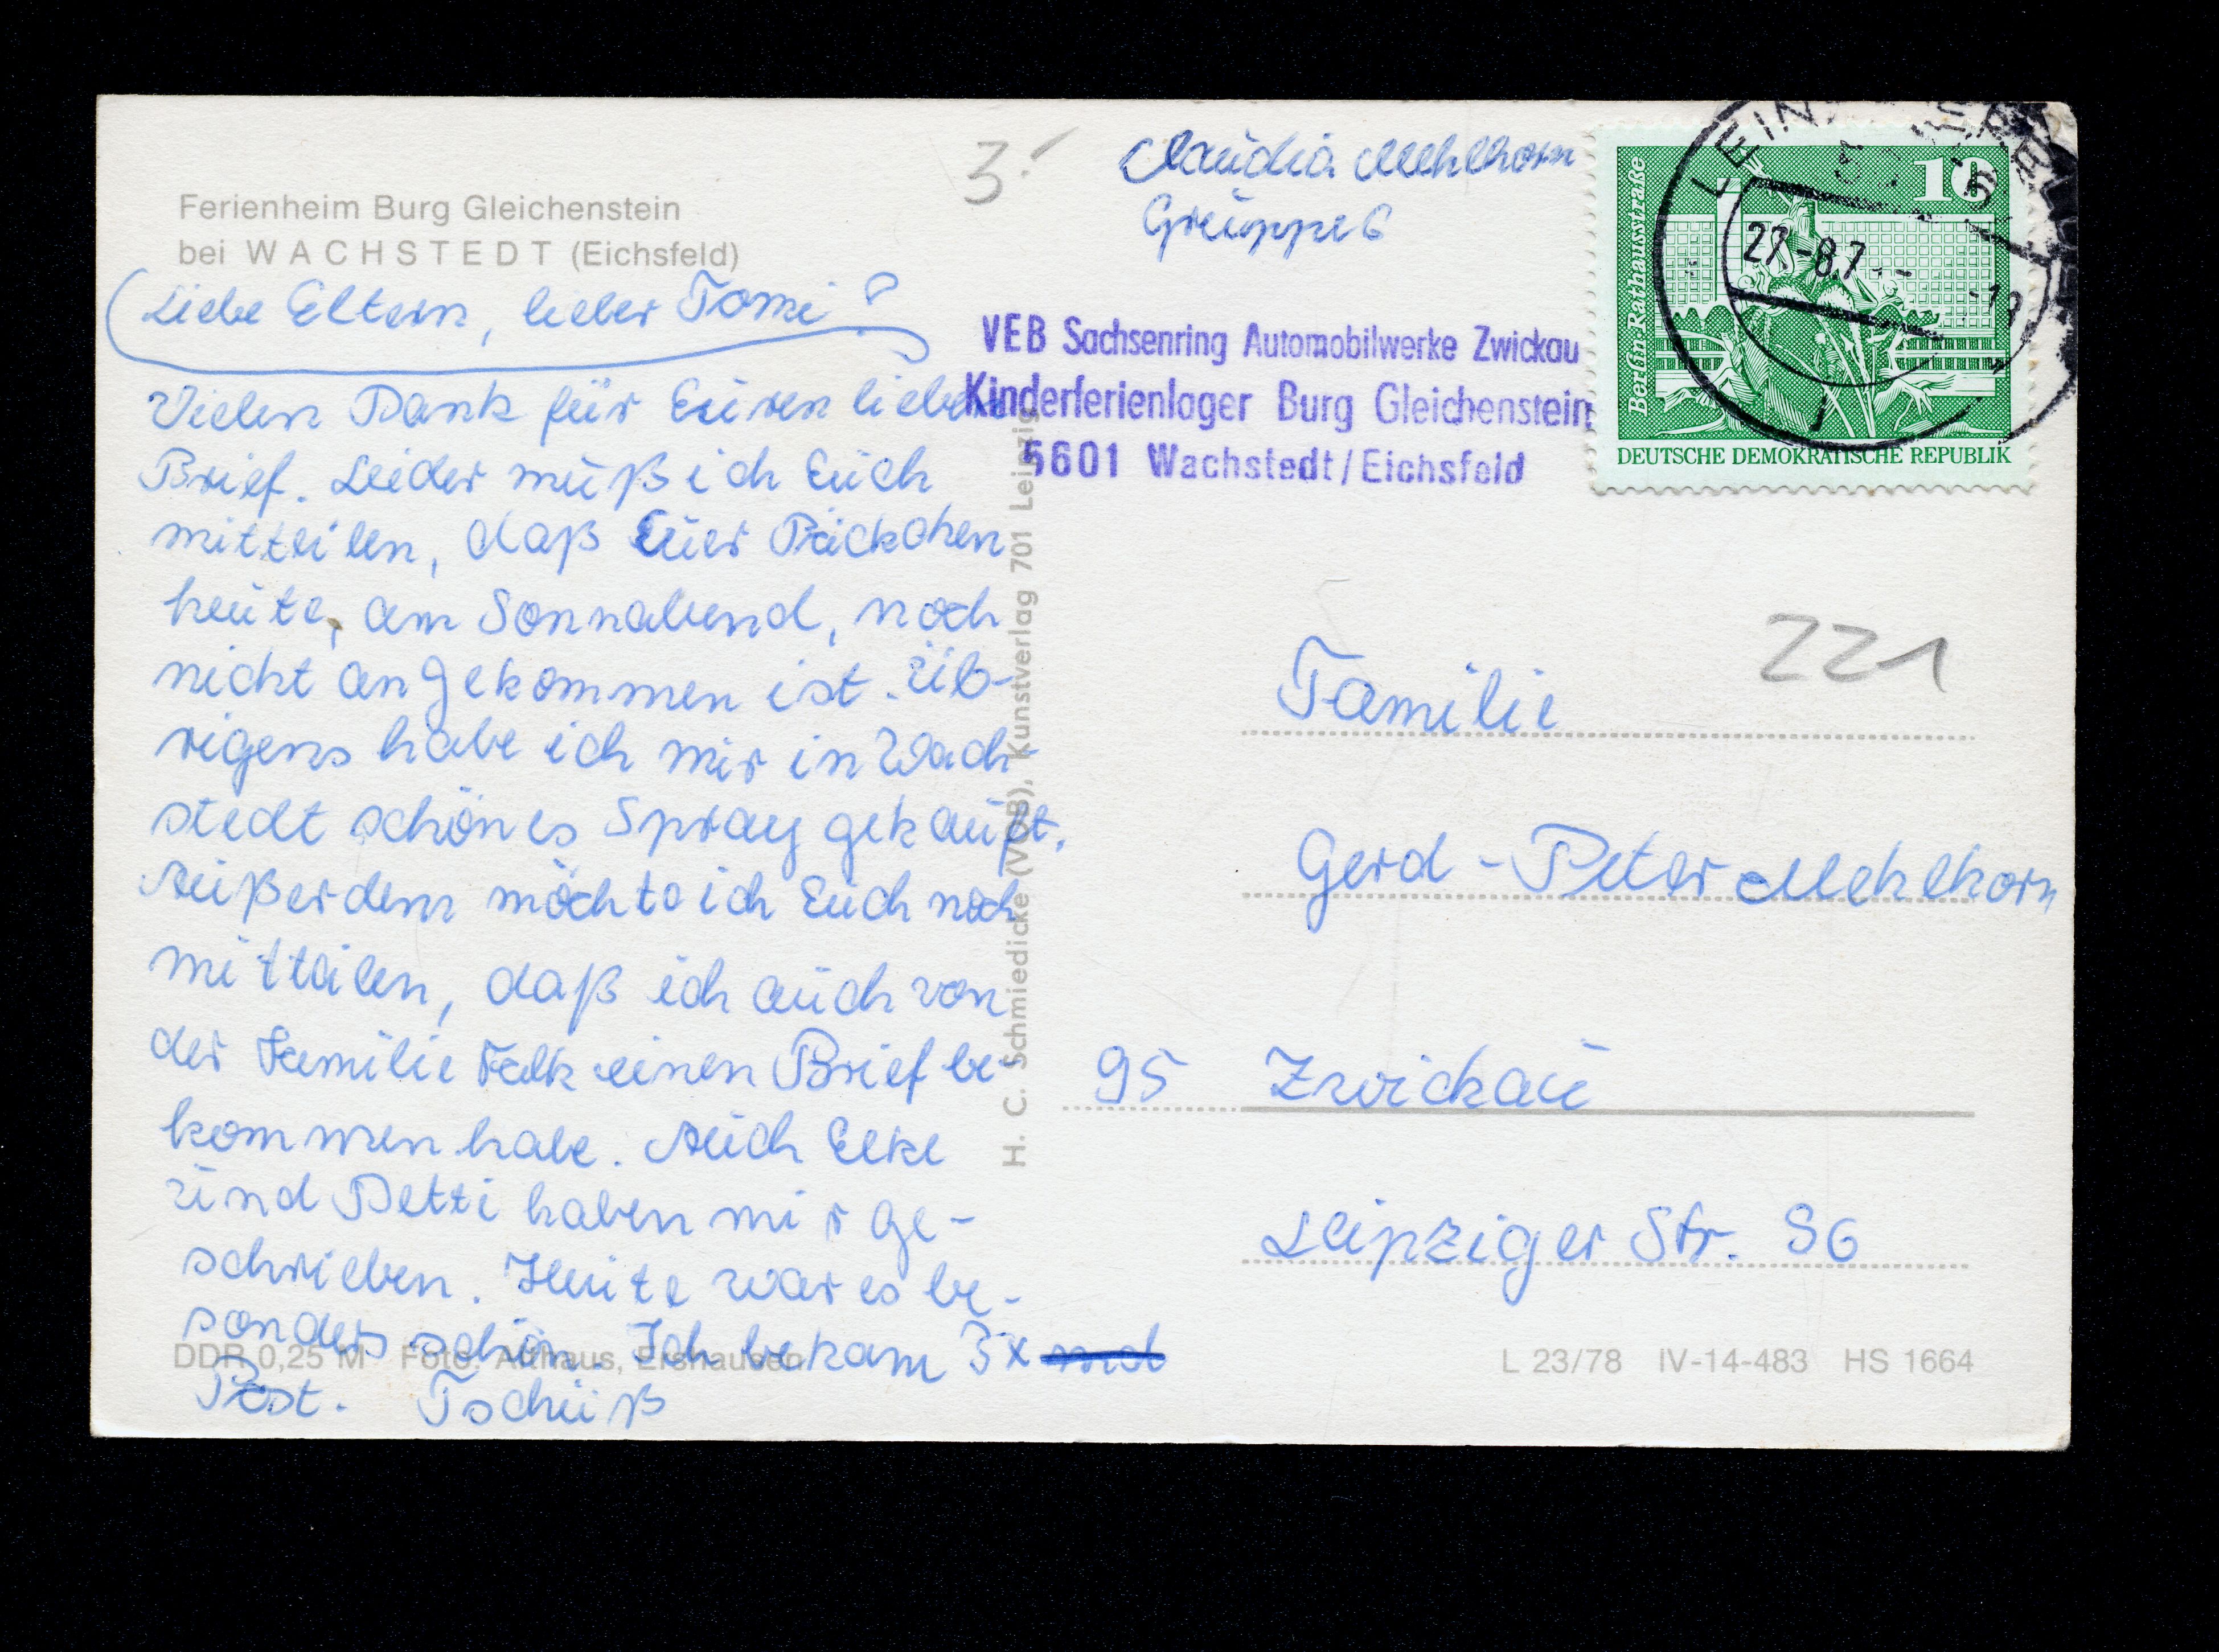 Ferienheim Burg Gleichenstein
bei WACHSTEDT (Eichsfeld)
Liebe Eltern, lieber Tomi!
Vielen Dank für Euren lieben
Brief. Leider muß ich Euch
mitteilen, daß Euer Päckchen
heute, am Sonnabend, noch
nicht angekommen ist. Üb-
rigens habe ich mir in Wach-
stedt schönes Spray gekauft.
Außerdem möchte ich Euch noch
mitteilen, daß ich auch von
der Familie Falk einen Brief be-
kommen habe. Auch Elke
und Detti haben mir ge-
schrieben. Heute war es be-
sonders schön. Ich bekam 3x
Post. Tschüß
DDR 0,25 M Foto: Althaus, Ershausen
H. C. Schmiedicke (VOB), Kunstverlag 701 Leipzig
3.
Claudia Mehlhorn
Gruppe 6
VEB Sachsenring Automobilwerke Zwickau
Kinderferienlager Burg Gleichenstein
5601 Wachstedt/Eichsfeld
Berlin-Rathausstraße
10
DEUTSCHE DEMOKRATISCHE REPUBLIK
27.-8.7
221
Familie
Gerd-Peter Mehlhorn
95 Zwickau
Leipziger Str. 96
L 23/78 IV-14-483 HS 1664